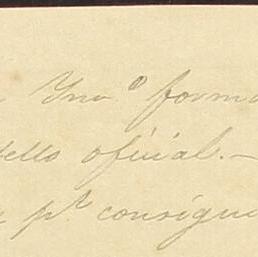 Ynv.º forma
sello oficial.—
p.ª consegui